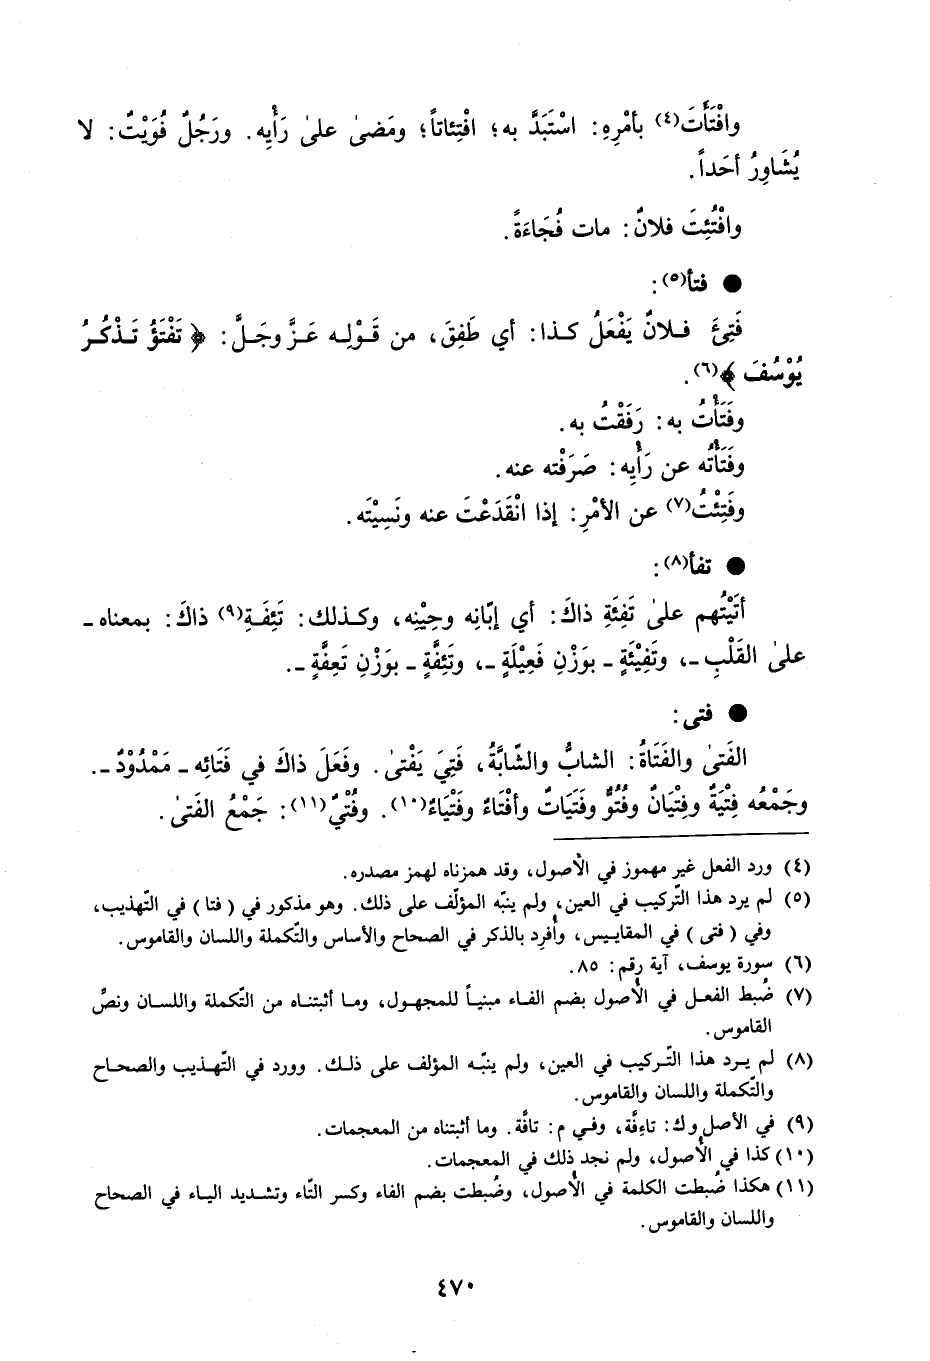 وافْتَأَتَ(٤) بأمْرِهِ: اسْتَبَدَّ به؛ افْتِئاتاً؛ ومَضىٰ علىٰ رَأْيِه. ورَجُلٌ فُوَيْتٌ: لا
يُشَاوِرُ أحَداً.
وافْتُئِتَ فلانٌ: مات فُجَاءَةً.
● فتأ(٥):
فَتِئَ فـلانٌ يَفْعَلُ كـذا: أي طَفِقَ، من قَـوْلِـه عَـزَّ وجَـلَّ: ﴿ تَفْتَؤُ تَـذْكُـرُ
يُوْسُفَ ﴾(٦).
وفَتَأْتُ به: رَفَقْتُ به.
وفَتَأْتُه عن رَأْيِه: صَرَفْته عنه.
وفَتِئْتُ(٧) عن الأمْرِ: إذا انْقَدَعْتَ عنه ونَسِيْتَه.
● تفأ(٨):
أتَيْتُهم علىٰ تَفِئَةِ ذاكَ: أي إبّانِه وحِيْنِه، وكـذلك: تَئِفَـةِ(٩) ذاكَ: بمعناه ـ
علىٰ القَلْبِ ـ، وتَفِيْئَةٍ ـ بوَزْنِ فَعِيْلَةٍ ـ، وتَئِفَّةٍ ـ بوَزْنِ تَعِفَّةٍ ـ.
● فتى:
الفَتىٰ والفَتَاةُ: الشابُّ والشّابَّةُ، فَتِيَ يَفْتىٰ. وفَعَلَ ذاكَ في فَتَائِه ـ مَمْدُوْدٌ ـ.
وجَمْعُه فِتْيَةٌ وفِتْيَانٌ وفُتُوٌّ وفَتَيَاتٌ وأفْتَاءٌ وفَتْيَاءٌ(١٠). وفُتْيٌ(١١): جَمْعُ الفَتىٰ.
(٤) ورد الفعل غير مهموز في الأصول، وقد همزناه لهمز مصدره.
(٥) لم يرد هذا التّركيب في العين، ولم ينبّه المؤلّف على ذلك. وهو مذكور في ( فتا ) في التّهذيب،
وفي ( فتى ) في المقاييس، وأُفرِد بالذكر في الصحاح والأساس والتّكملة واللسان والقاموس.
(٦) سورة يوسف، آية رقم: ٨٥.
(٧) ضُبط الفعـل في الأُصول بضم الفـاء مبنيـاً للمجهـول، ومـا أثبتنـاه من التّكملة واللسـان ونصِّ
القاموس.
(٨) لم يـرد هذا التّـركيب في العين، ولم ينبّـه المؤلف على ذلـك. وورد في التّهـذيب والصحـاح
والتّكملة واللسان والقاموس.
(٩) في الأصل و ك: تاءِفَّة، وفـي م: تافَّة. وما أثبتناه من المعجمات.
(١٠) كذا في الأُصول، ولم نجد ذلك في المعجمات.
(١١) هكذا ضُبطت الكلمة في الأُصول، وضُبطت بضم الفاء وكسر التّاء وتشـديد اليـاء في الصحاح
واللسان والقاموس.
٤٧٠